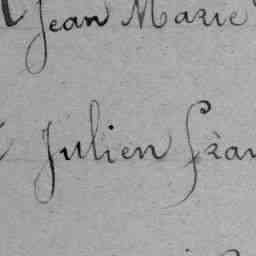 Jean Marie
Julien Fran